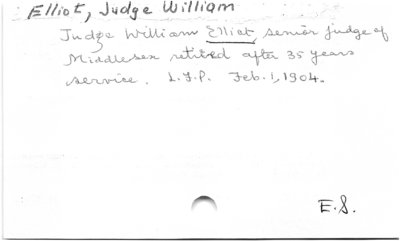 Elliot, Judge William
Judge William Elliot, senior judge of
Middlesex retired after 35 years
service. L.F.P. Feb. 1, 1904.
E.S.